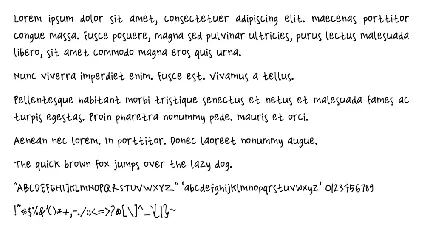 Lorem ipsum dolor sit amet, consectetuer adipiscing elit. maecenas porttitor
congue massa. Fusce posuere, magna sed pulvinar ultricies, purus lectus malesuada
libero, sit amet commodo magna eros quis urna.
Nunc viverra imperdiet enim. Fusce est. Vivamus a tellus.
Pellentesque habitant morbi tristique senectus et netus et malesuada fames ac
turpis egestas. Proin pharetra nonummy pede. mauris et orci.
Aenean nec lorem. In porttitor. Donec laoreet nonummy augue.
The quick brown fox jumps over the lazy dog.
"ABCDEFGHIJKLMNOPQRSTUVWXYZ" 'abcdefghijklmnopqrstuvwxyz' 0123456789
!"#$%&'()*+,-./:;<=>?@[\]^_`{|}~